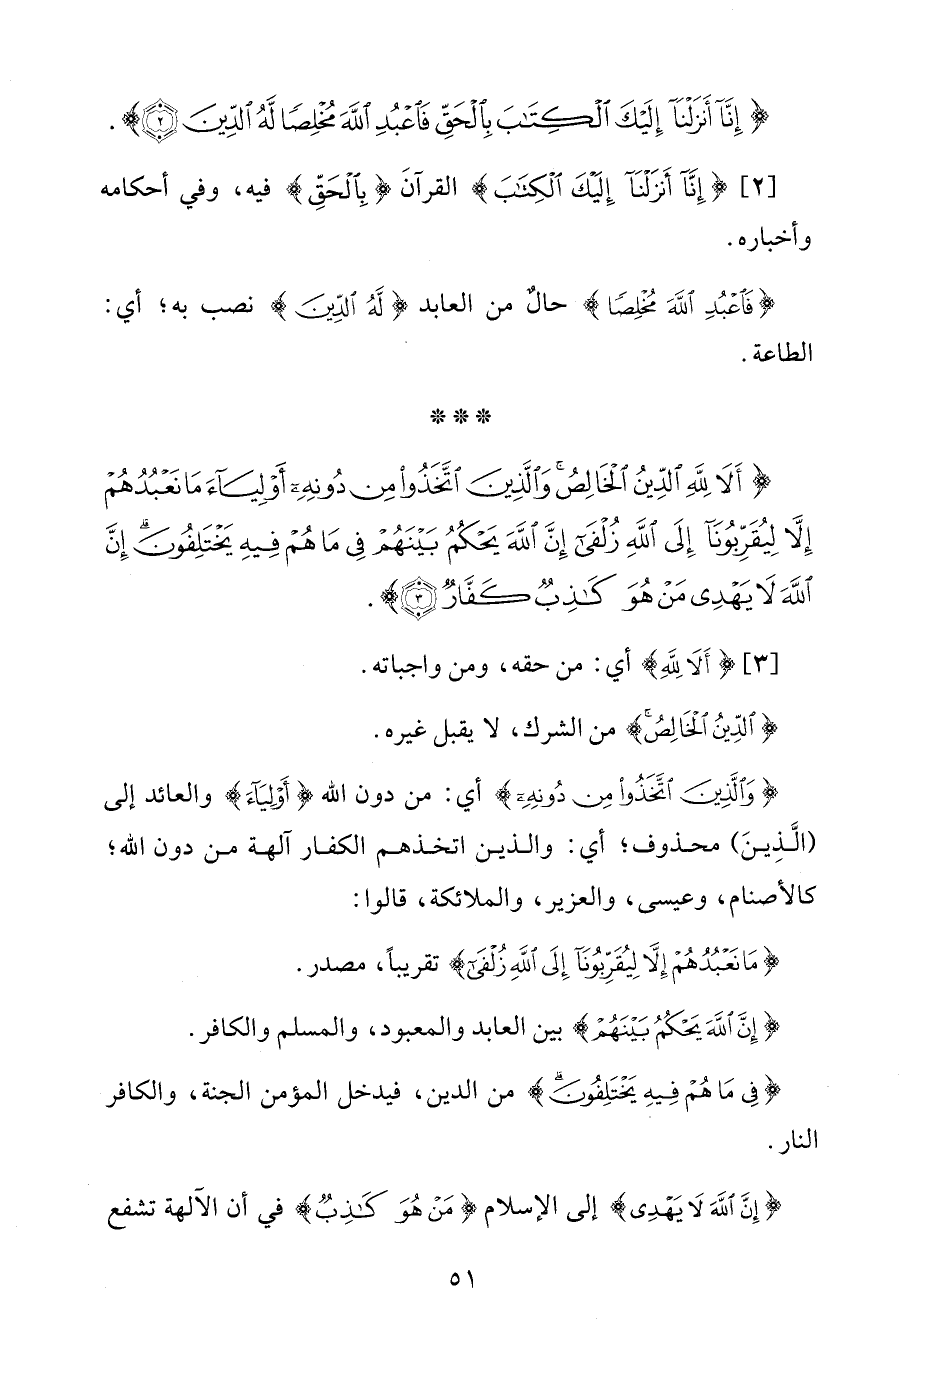 ﴿ إِنَّآ أَنزَلْنَآ إِلَيْكَ ٱلْكِتَٰبَ بِٱلْحَقِّ فَٱعْبُدِ ٱللَّهَ مُخْلِصًا لَّهُ ٱلدِّينَ ۝٢ ﴾ .
[٢] ﴿ إِنَّآ أَنزَلْنَآ إِلَيْكَ ٱلْكِتَٰبَ ﴾ القرآنَ ﴿ بِٱلْحَقِّ ﴾ فيه، وفي أحكامه
وأخباره.
﴿ فَٱعْبُدِ ٱللَّهَ مُخْلِصًا ﴾ حالٌ من العابد ﴿ لَّهُ ٱلدِّينَ ﴾ نصب به؛ أي:
الطاعة.
* * *
﴿ أَلَا لِلَّهِ ٱلدِّينُ ٱلْخَالِصُ ۚ وَٱلَّذِينَ ٱتَّخَذُوا۟ مِن دُونِهِۦٓ أَوْلِيَآءَ مَا نَعْبُدُهُمْ
إِلَّا لِيُقَرِّبُونَآ إِلَى ٱللَّهِ زُلْفَىٰٓ إِنَّ ٱللَّهَ يَحْكُمُ بَيْنَهُمْ فِى مَا هُمْ فِيهِ يَخْتَلِفُونَ ۗ إِنَّ
ٱللَّهَ لَا يَهْدِى مَنْ هُوَ كَٰذِبٌ كَفَّارٌ ۝٣ ﴾ .
[٣] ﴿ أَلَا لِلَّهِ ﴾ أي: من حقه، ومن واجباته.
﴿ ٱلدِّينُ ٱلْخَالِصُ ۚ ﴾ من الشرك، لا يقبل غيره.
﴿ وَٱلَّذِينَ ٱتَّخَذُوا۟ مِن دُونِهِۦٓ ﴾ أي: من دون الله ﴿ أَوْلِيَآءَ ﴾ والعائد إلى
(الَّذِينَ) محذوف؛ أي: والذين اتخذهم الكفار آلهة من دون الله؛
كالأصنام، وعيسى، والعزير، والملائكة، قالوا:
﴿ مَا نَعْبُدُهُمْ إِلَّا لِيُقَرِّبُونَآ إِلَى ٱللَّهِ زُلْفَىٰٓ ﴾ تقريباً، مصدر.
﴿ إِنَّ ٱللَّهَ يَحْكُمُ بَيْنَهُمْ ﴾ بين العابد والمعبود، والمسلم والكافر.
﴿ فِى مَا هُمْ فِيهِ يَخْتَلِفُونَ ۗ ﴾ من الدين، فيدخل المؤمن الجنة، والكافر
النار.
﴿ إِنَّ ٱللَّهَ لَا يَهْدِى ﴾ إلى الإسلام ﴿ مَنْ هُوَ كَٰذِبٌ ﴾ في أن الآلهة تشفع
٥١